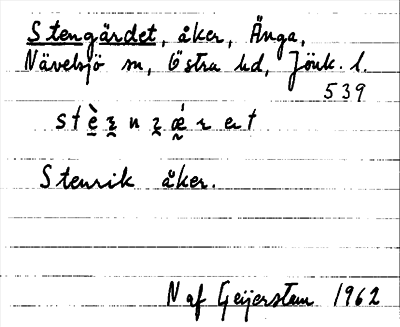 Stengärdet, åker, Änga,
Nävelsjö sn, Östra hd, Jönk. l.
539
Stenrik åker.
N af Geijerstam 1962